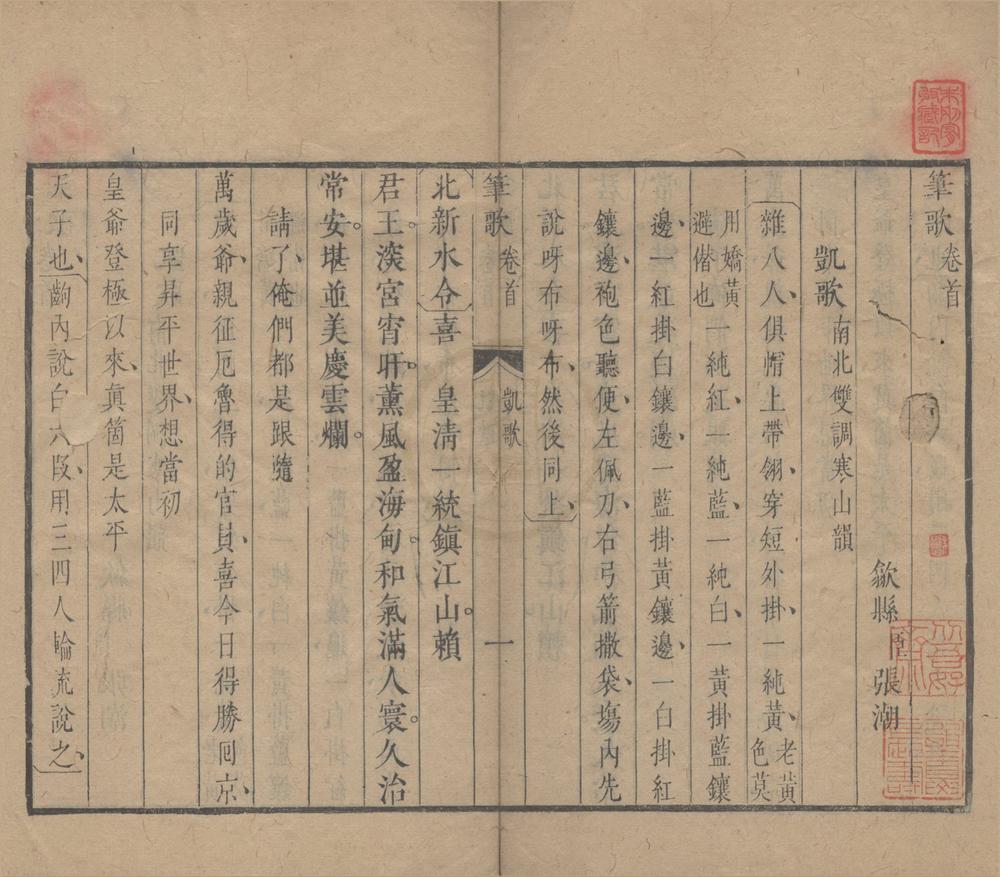 筆歌卷首
歙縣臣張潮
凱歌南北雙調寒山韻
雜八人俱帽上帶翎穿短外掛一純黃老黃色莫
用嬌黃避僭也一純紅一純藍一純白一黃掛藍鑲
邊一紅掛白鑲邊一藍掛黃鑲邊一白掛紅
鑲邊袍色聽便左佩刀右弓箭撒袋塲內先
說呀布呀布然後同上
筆歌 卷首 凱歌 一
北新水令喜 皇淸一統鎭江山賴
君王淡宮宵旰薰風盈海甸和氣滿人寰久治
常安堪並美慶雲爛
請了俺們都是跟隨
萬歲爺親征厄魯得的官員喜今日得勝囘京
同享昇平世界想當初
皇爺登極以來眞箇是太平
天子也齣內說白六段用三四人輪流說之